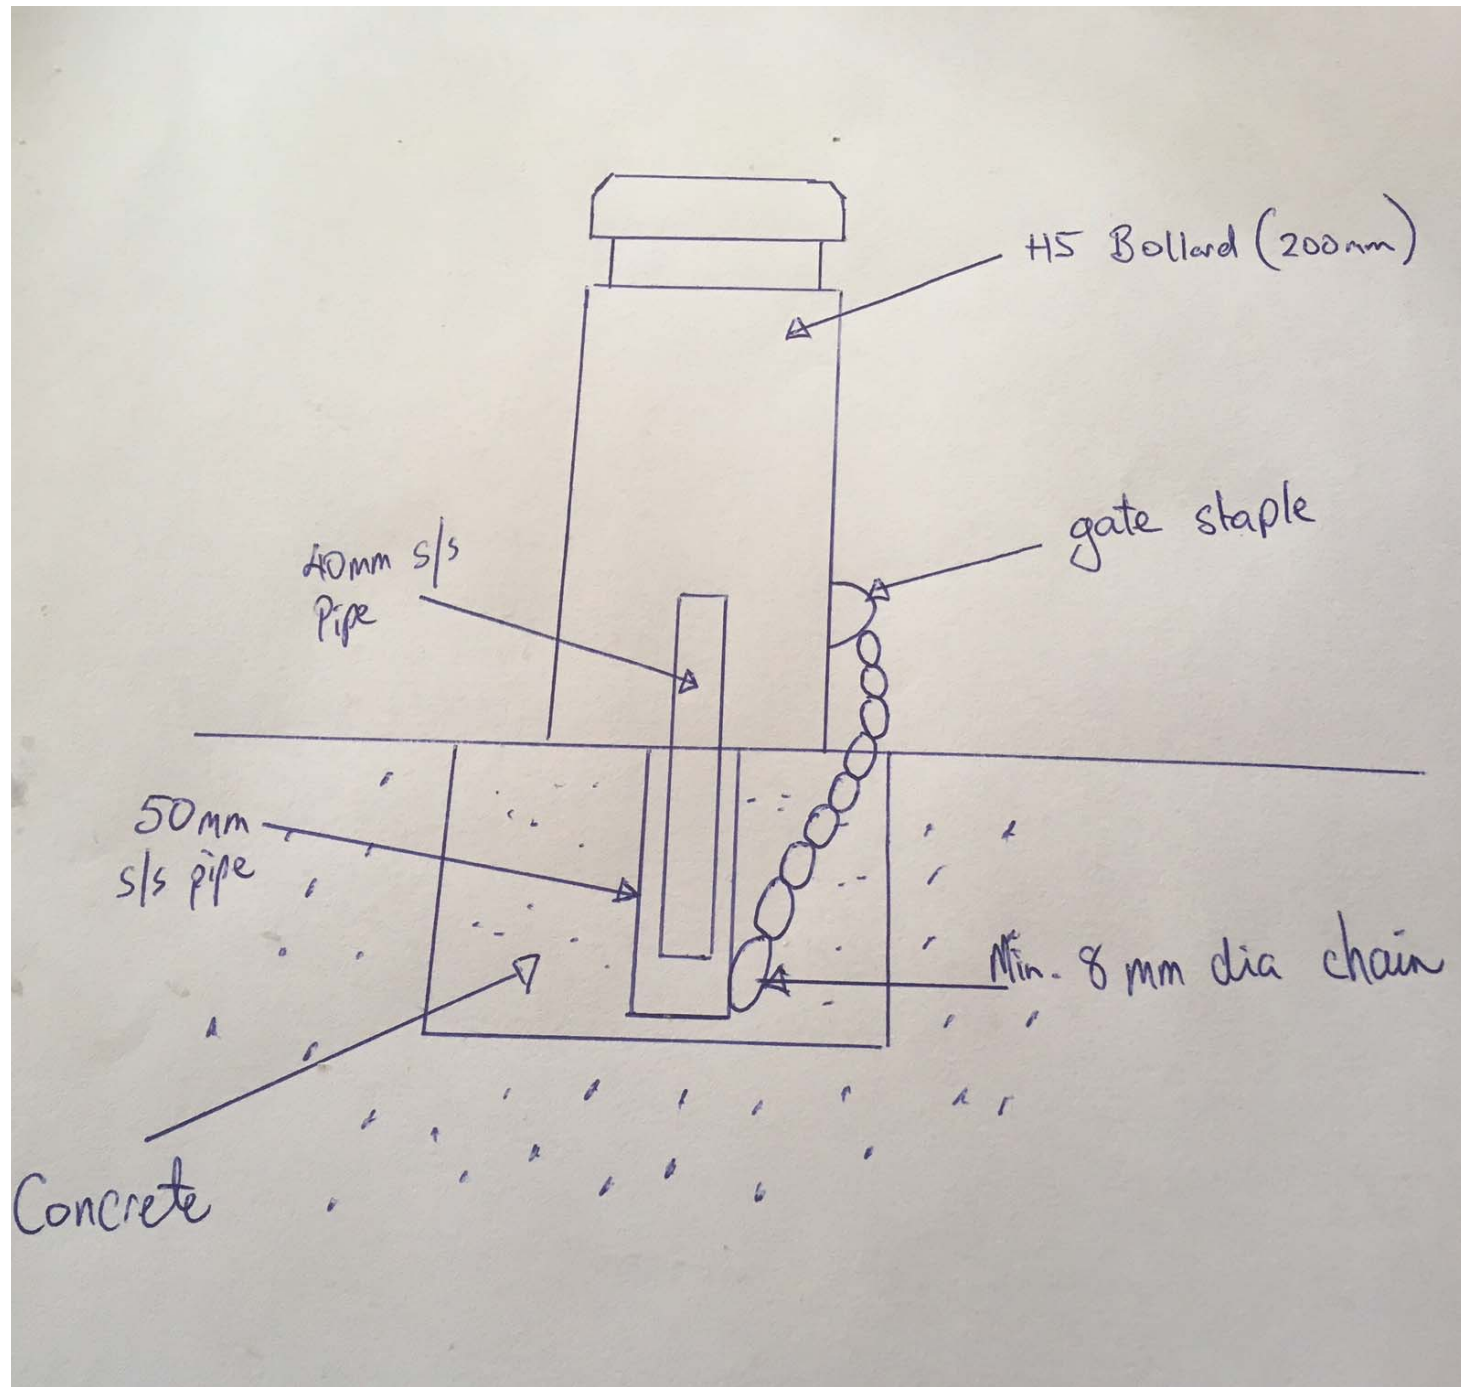 H5 Bollard (200mm)
gate staple
40mm s/s
Pipe
50mm
s/s pipe
Min. 8 mm dia chain
Concrete